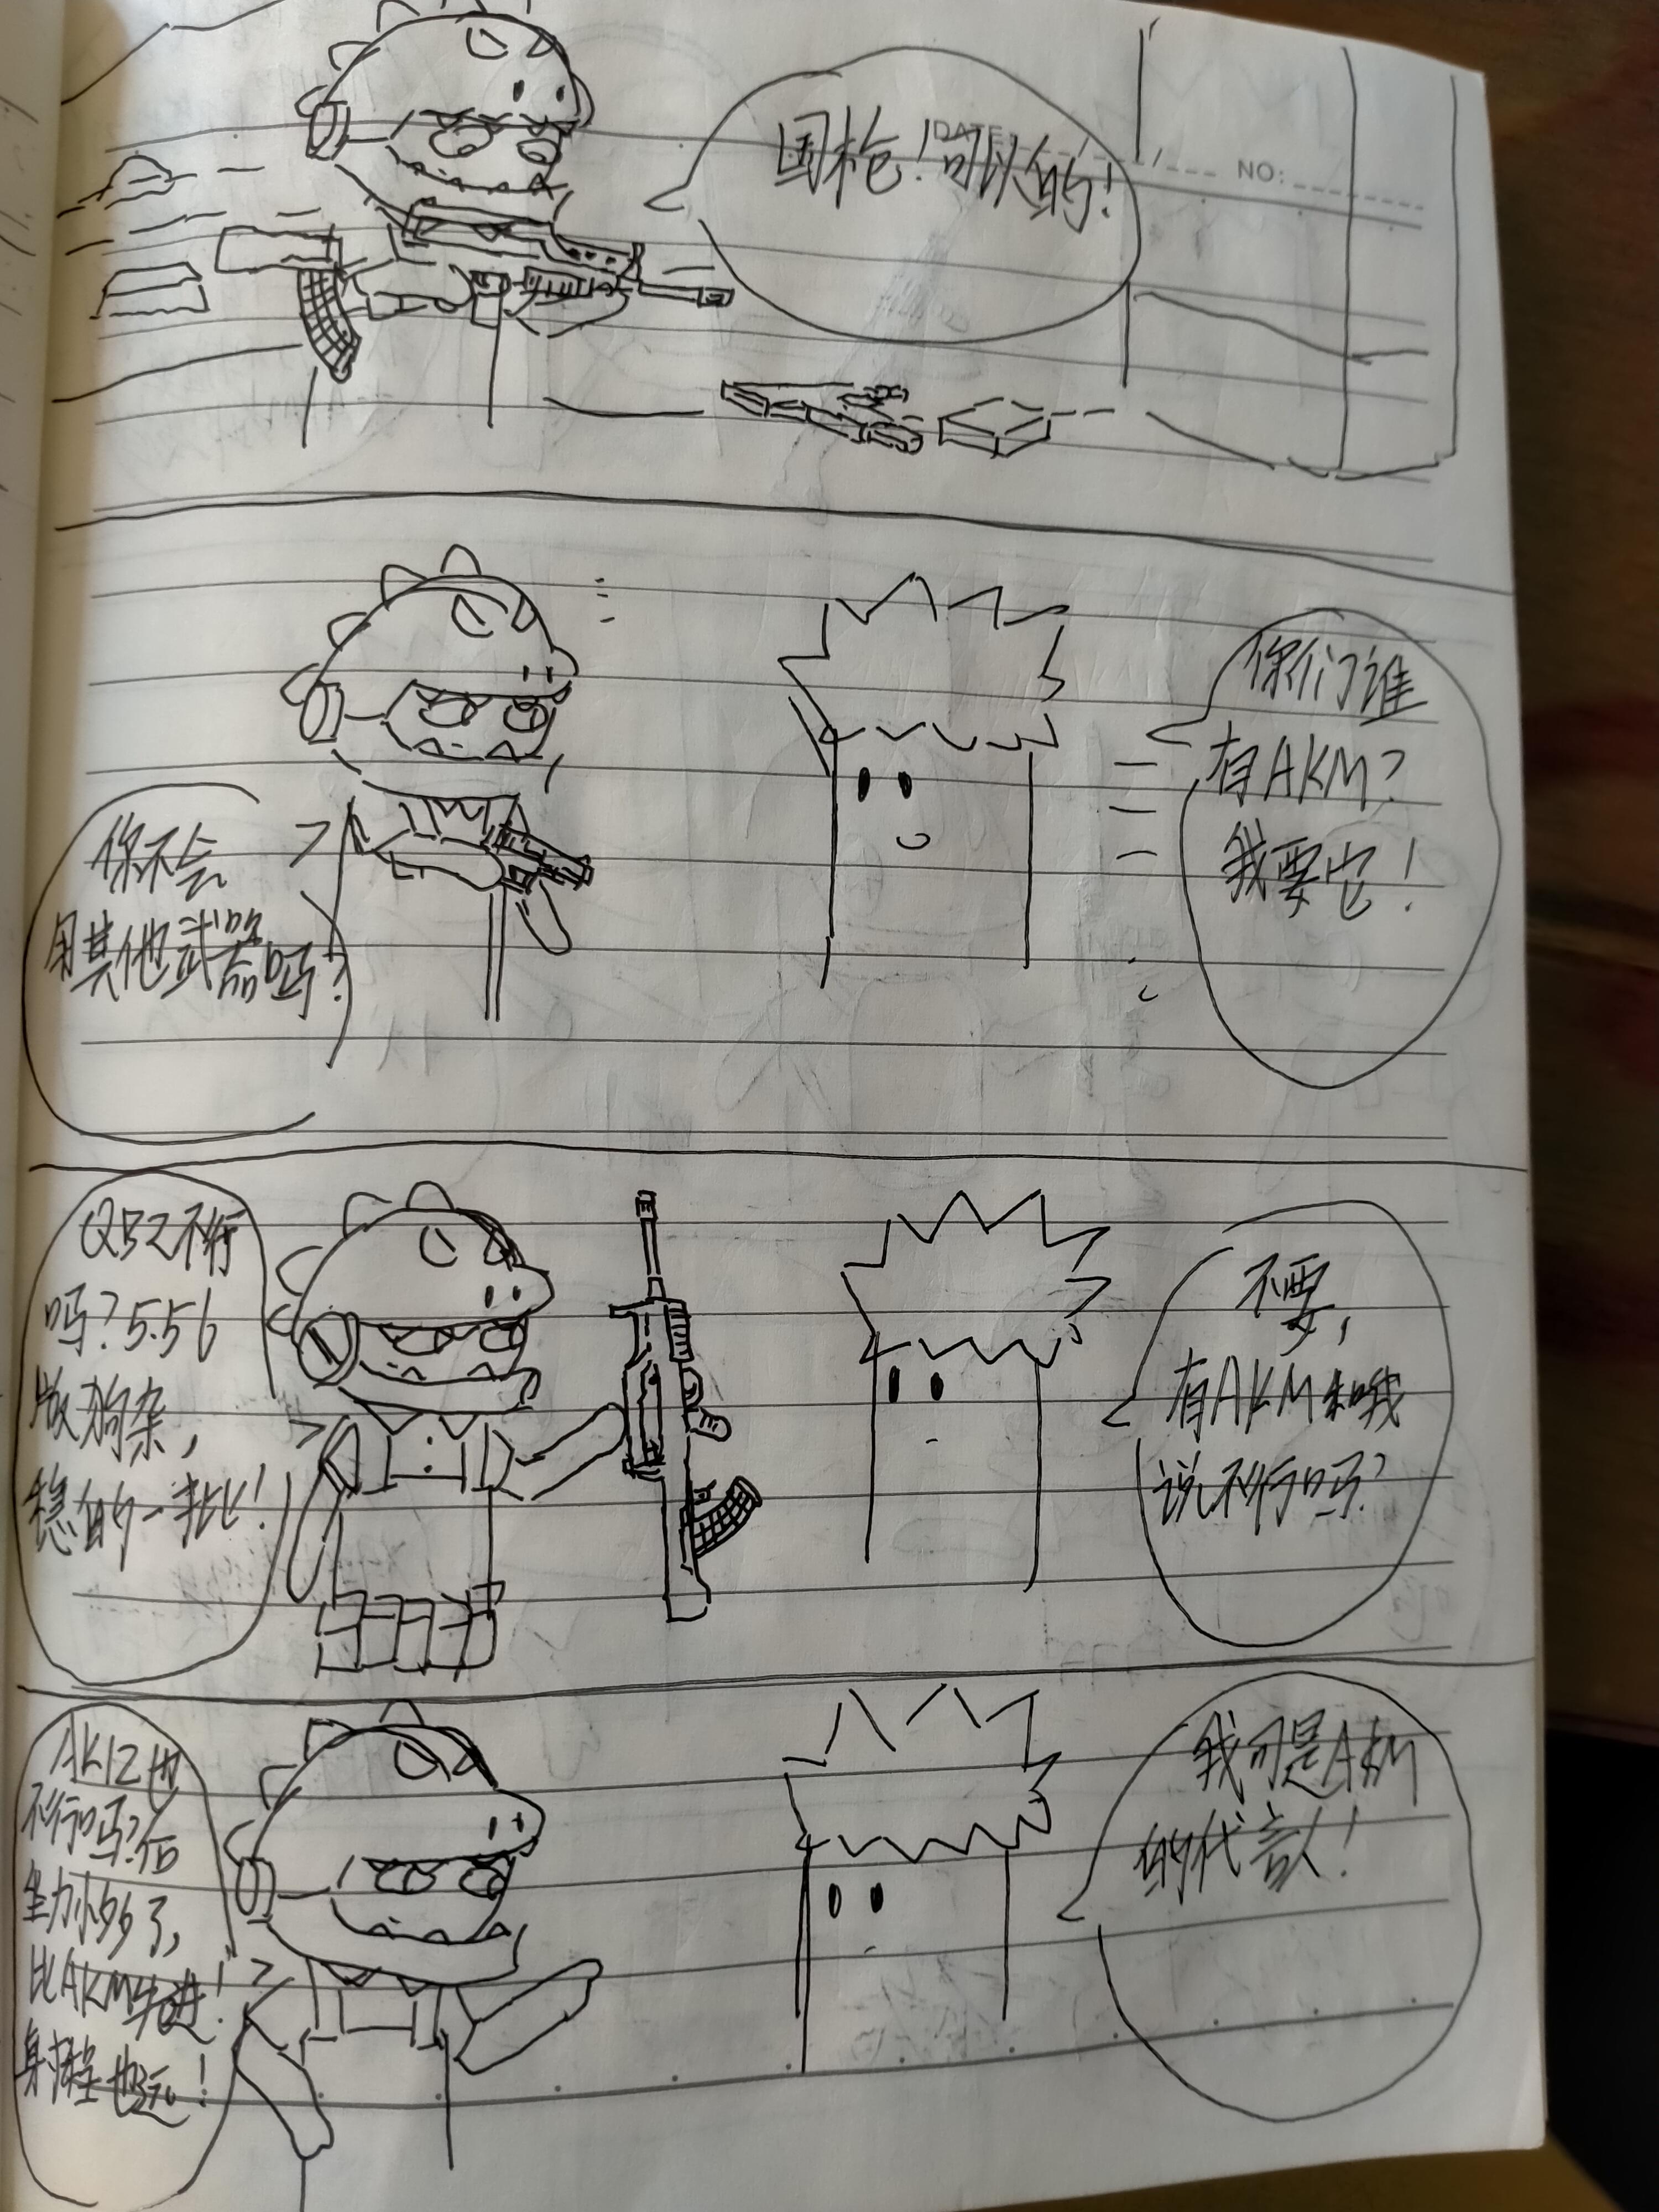 DATE:
NO:
国枪!可以的!
你们谁
有AKM?
我要它!
你不会
用其他武器吗?
QBZ不行
吗?5.56
版狗杂,
稳的一批!
不要,
有AKM和哦
说不行吗?
AK12也
不行吗?后
坐力小多了,
比AKM先进!
射程也远!
我可是AKM
的代言人!